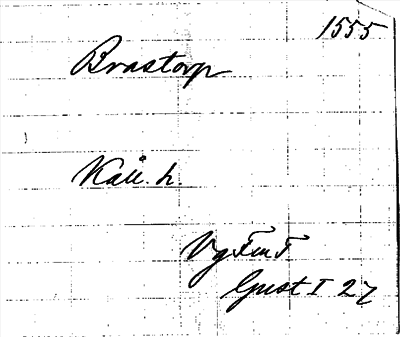 1555
Brastorp
Kåll. h.
Vg Fm F
Gust I 27